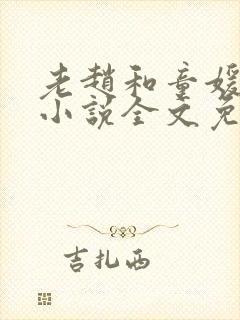 老趙和童媛
小說全文免
吉扎西